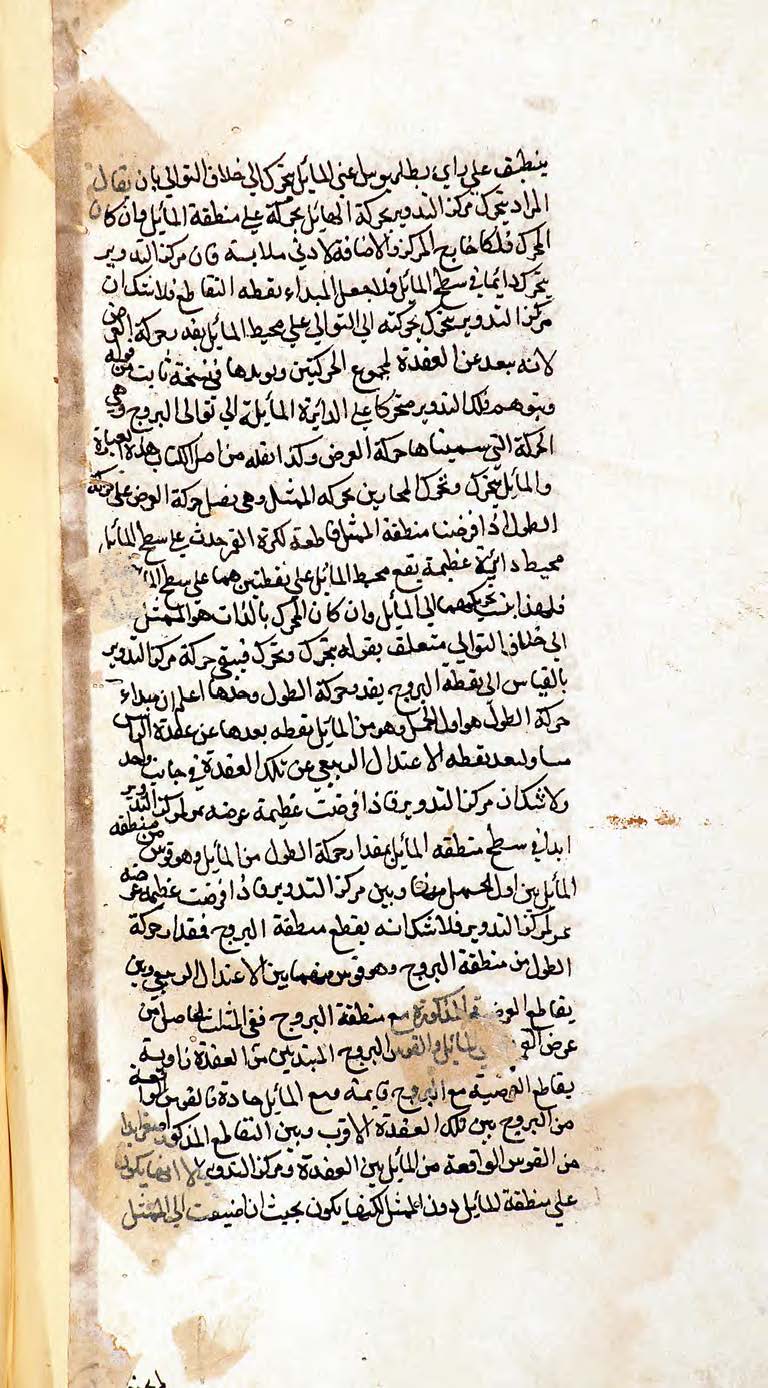 ينطبق علي راي بطلميوس اعني المايل يتحرك الي خلاف التوالي بان يقال
المراد يتحرك مركز التدوير بحركة المايل بحركة علي منطقة المايل وان كان
المحرك فلكا خارج المركز والاضافة لادني ملابسة فان مركز التدوير
يتحرك دايما في سطح المايل فلا جعل المبداء نقطه التقاطع فلا شك ان
مركز التدوير يتحرك بحركته الي التوالي علي محيط المايل بقدر حركة العرض
لانه بعد عن العقدة لمجموع الحركتين ويويدها في نسخة ثابت من قوله
ويتوهم فلك التدوير متحركا علي الدائرة المايلة الي توالي البروج وهي
الحركة التي سميناها حركة العرض وكذا نقله من اصل الكتاب هذه العبارة
والمايل يتحرك ويحرك بحركه الممثل وهي بفضل حركة العرض علي حركة
الطول اذا فرضنا منطقة الممثل قاطعة لكرة القمر حدث علي سطح المايل
محيط دائرة عظيمة يقع محيط المايل علي نقطتين هما علي سطح
فلهذا الي المايل وان كان المحرك بالذات هو الممثل
الي خلاف التوالي متعلق بقوله يتحرك ويحرك فيبقي حركة مركز التدوير
بالقياس الي نقطة البروج بقدر حركة الطول وحدها اعلم ان مبداء
حركة الطول هو اول الحمل وهو من المايل نقطه بعدها عن عقدة الراس
مساو لبعد نقطه الاعتدال الربيعي عن تلك العقدة في جانب واحد
ولا شك ان مركز التدوير فاذا فرضت عظيمة عرضه تمر بمركز التدوير
ابدا في سطح منطقه المايل بمقدار حركة الطول من المايل وهو قوس من منطقه
المايل بين اول الحمل وبين مركز التدوير فاذا فرضت عظيمه عرضه
تمر بمركز التدوير فلا شك انه يقطع منطقة البروج فمقدار حركة
الطول من منطقة البروج وهو قوس منهما بين الاعتدال الربيعي وبين
يقاطع المذكورة مع منطقة البروج ففي المثلث الحاصل من
عرض المايل والقوس البروج المبتديين من العقدة زاوية
يقاطع العرضية مع البروج قايمة ومع المايل حادة فالقوس الواقعة
من البروج بين تلك العقدة الاقرب وبين التقاطع المذكور اصغر ابدا
من القوس الواقعة من المايل بين العقدة ومركز التدوير لا انها يكون
علي منطقة المايل دون الممثل لكنها يكون بحيث ان اضيفت الي الممثل